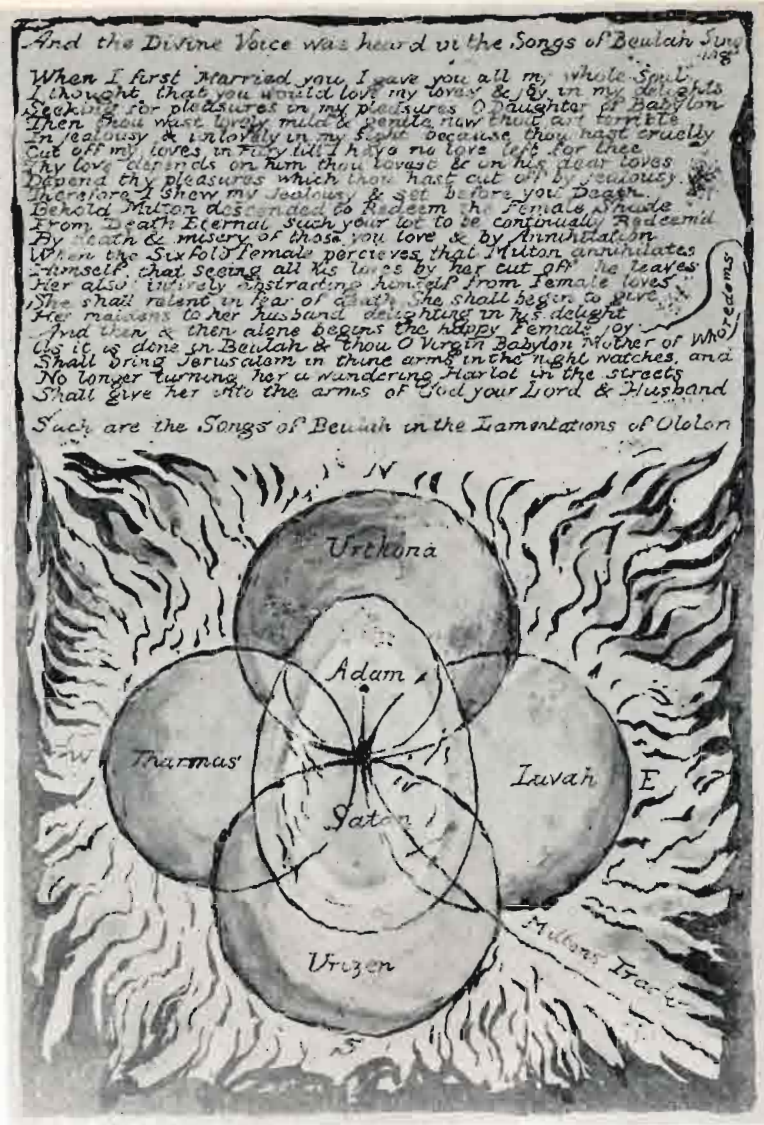 And the Divine Voice was heard in the Songs of Beulah Sing
ing
When I first Married you, I gave you all my whole Soul
I thought that you would love my loves & joy in my delights
Seeking for pleasures in my pleasures O Daughter of Babylon
Then thou wast lovely mild & gentle, now thou art terrible
In jealousy & unlovely in my sight because thou hast cruelly
Cut off my loves in Fury till I have no love left for thee
Thy love depends on him thou lovest & on his dear loves
Depend thy pleasures which thou hast cut off by jealousy
Therefore I shew my Jealousy & set before you Death.
Behold Milton descended to Redeem the Female Shade
From Death Eternal such your lot to be continually Redeem'd
By death & misery of those you love & by Annihilation
When the Sixfold Female percieves that Milton annihilates
Himself, that seeing all his loves by her cut off he leaves
Her also intirely abstracting himself from Female loves
She shall relent in fear of death She shall begin to give
Her maidens to her husband delighting in his delight
And then & then alone begins the happy Female joy
As it is done in Beulah & thou O Virgin Babylon Mother of Whoredoms
Shall bring Jerusalem in thine arms in the night watches, and
No longer turning her a wandering Harlot in the streets
Shall give her into the arms of God your Lord & Husband
Such are the Songs of Beulah in the Lamentations of Ololon
N
Urthona
Adam
W
Tharmas
Luvah
E
Satan
Miltons Track
Urizen
S